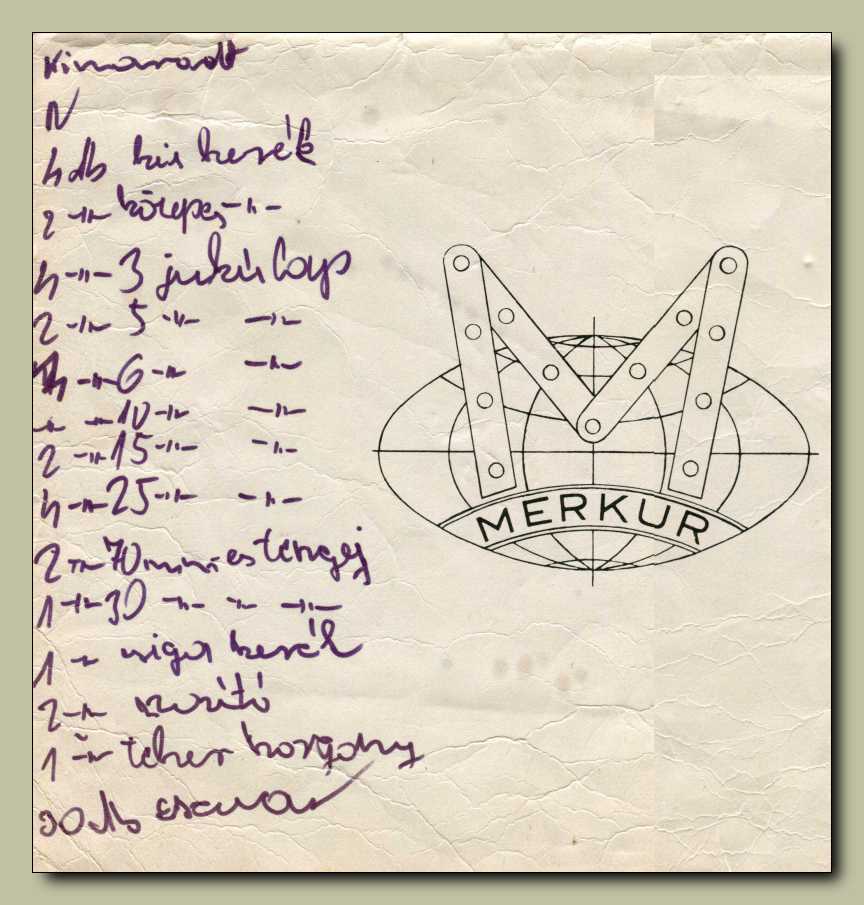 Kimaradt
N
4 db kis kerék
2 -"- közepes -"-
4 -"- 3 jukú lap
2 -"- 5 -"- -"-
4 -"- 6 -"- -"-
" -"- 10 -"- -"-
2 -"- 15 -"- -"-
4 -"- 25 -"- -"-
2 -"- 70 mm-es tengej
1 -"- 30 -"- -"- -"-
1 -"- kerék
2 -"- szorító
1 -"- teher horgony
90 db csavar
MERKUR